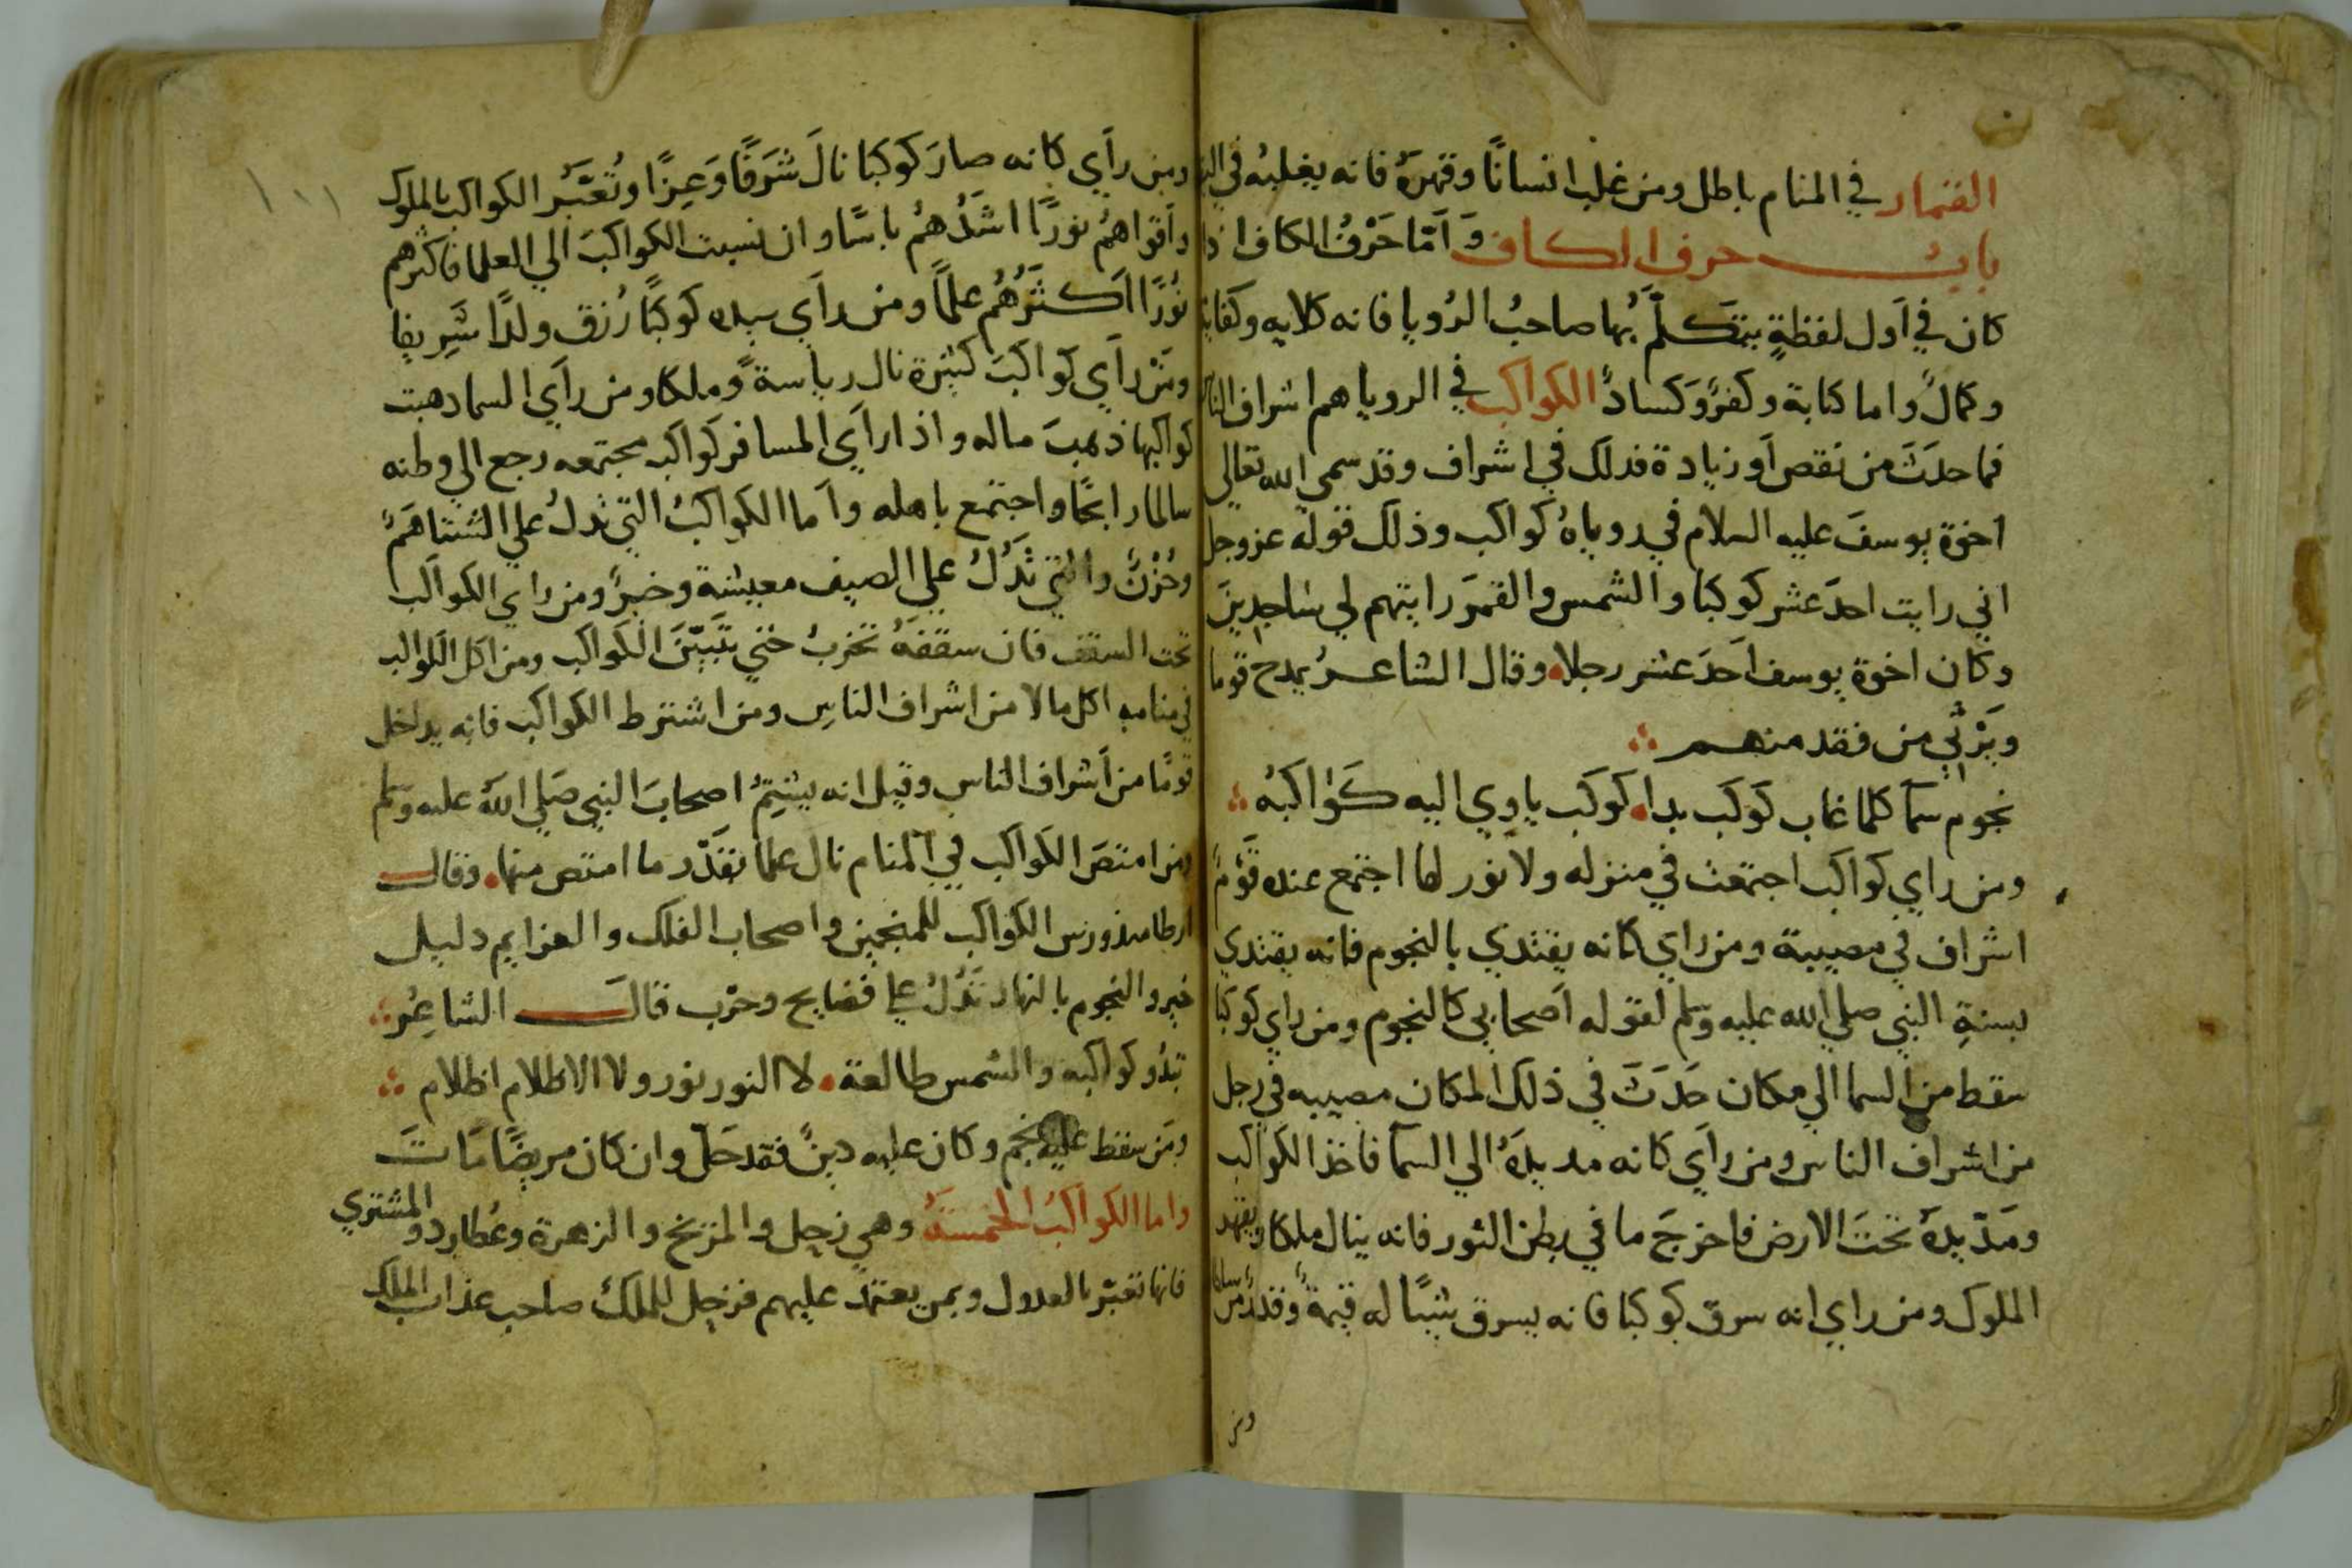 القمار في المنام باطل ومن غلب انسانًا وقهرهُ فانه يغلبهُ في
بابُ حرف الكاف وَاَمّا حَرْفُ الكاف اذا
كان في اَول لفظةٍ يتكلّمُ بها صاحبُ الرُويا فانه كلايه وكفاية
وكمالً واما كتابة وكفرًوَكسادً الكواكب في الرويا هم اشراف الناس
فما حدَثَ من نقص اَو زيادة فذلك في اشراف وقد سمي الله تعالي
اخوَة يوسفَ عليه السلام في روياهُ كواكب وذلك قوله عز وجل
اني رايت احدَ عشر كوكبا والشمس والقمرَ رايتهم لي سَاجدِينَ
وكان اخوة يوسف اَحدَ عشر رجلاه وقال الشاعرُ يمدح قوما
ويَرْثي من فقد منهم
نجوم سمآ كلما غاب كوكب بداه كوكب ياوِي اليه كَوَاكبُه
ومن راي كواكب اجتمعت في منزله ولا نور لها اجتمع عنده قَوْمً
اشراف في مصيبة ومن راي كانه يقتدي بالنجوم فانه يقتدي
بسنةِ النبي صلي الله عليه وسلم لقوله اَصحابي كالنجوم ومن راي كوكبا
سقط من السما الي مكان حَدَثَ في ذلك المكان مصيبه في رجل
من اشراف الناس ومن راَي كانه مد يدَهُ الي السمآ فاخذ الكواكب
ومَدّ يدهُ تحتَ الارض فاخرجَ ما في بطن الثور فانه ينال ملكا ويقهر
الملوك ومن راي انه سرق كوكبا فانه يسرق شيًا له قيمةً وقدرً
ومن
ومن راَي كانه صارَ كوكبا نالَ شَرَفًا وَعِزًا وتُعَبَّرُ الكواكب بالملوك
واَقواهمُ نورًا اشَدُهمُ باسًا وان نسبت الكواكبَ الي العلما فاكثرهم
نُورًا اَكثَرُهُم علمًا ومن راَي بيده كوكبًا رُزق ولدًا شَريفا
ومَنْ راَي كَواكبَ كثيرة نال رياسةً وملكا ومن راَي السما دهبت
كواكبها ذهبَ ماله واذا راَي المسافر كواكب مجتمعه رجع الي وطنه
سالما رابحًا واجتمع باهله واَما الكواكبُ التي تدلُ علي الشتا هَمً
وحُزْنً والتي تَدُلُ علي الصيف معيشة وخيرً ومن راي الكواكب
تحت السقف فان سقفهُ تخربُ حتي تَبَيّنَ الكواكب ومن اكل الكواكب
في منامه اكل مالا من اشراف الناس ومن اشترط الكواكب فانه يداخل
قومًا من اَشراف الناس وقيل انه يشتِمُ اصحابَ النبي صَلي الله عليه وسلم
ومن امتصَ الكواكب في المنام نال علما بقدّر ما امتص منهاه وقال
ارطاميدورس الكواكب للمنجمين واصحاب الفلك والعزايم دليل
خير والنجوم بالنهار تَدُلُ علي فضايح وحرْب قالَ الشاعِرُ
تبدُو كواكبه والشمس طالعةه لا النور نور ولا الاظلام اظلام
ومَن سقط عليه نجم وكان عليه دينً فقد حَلّ وان كان مريضًا مَاتَ
واما الكواكبُ الخمسَةُ وهي زحل والمريخ والزهرة وعُطارد والمشتري
فانها تعبّر بالعدول وبمن يعتمد عليهم فزحل للملك صاحب عذاب الملك